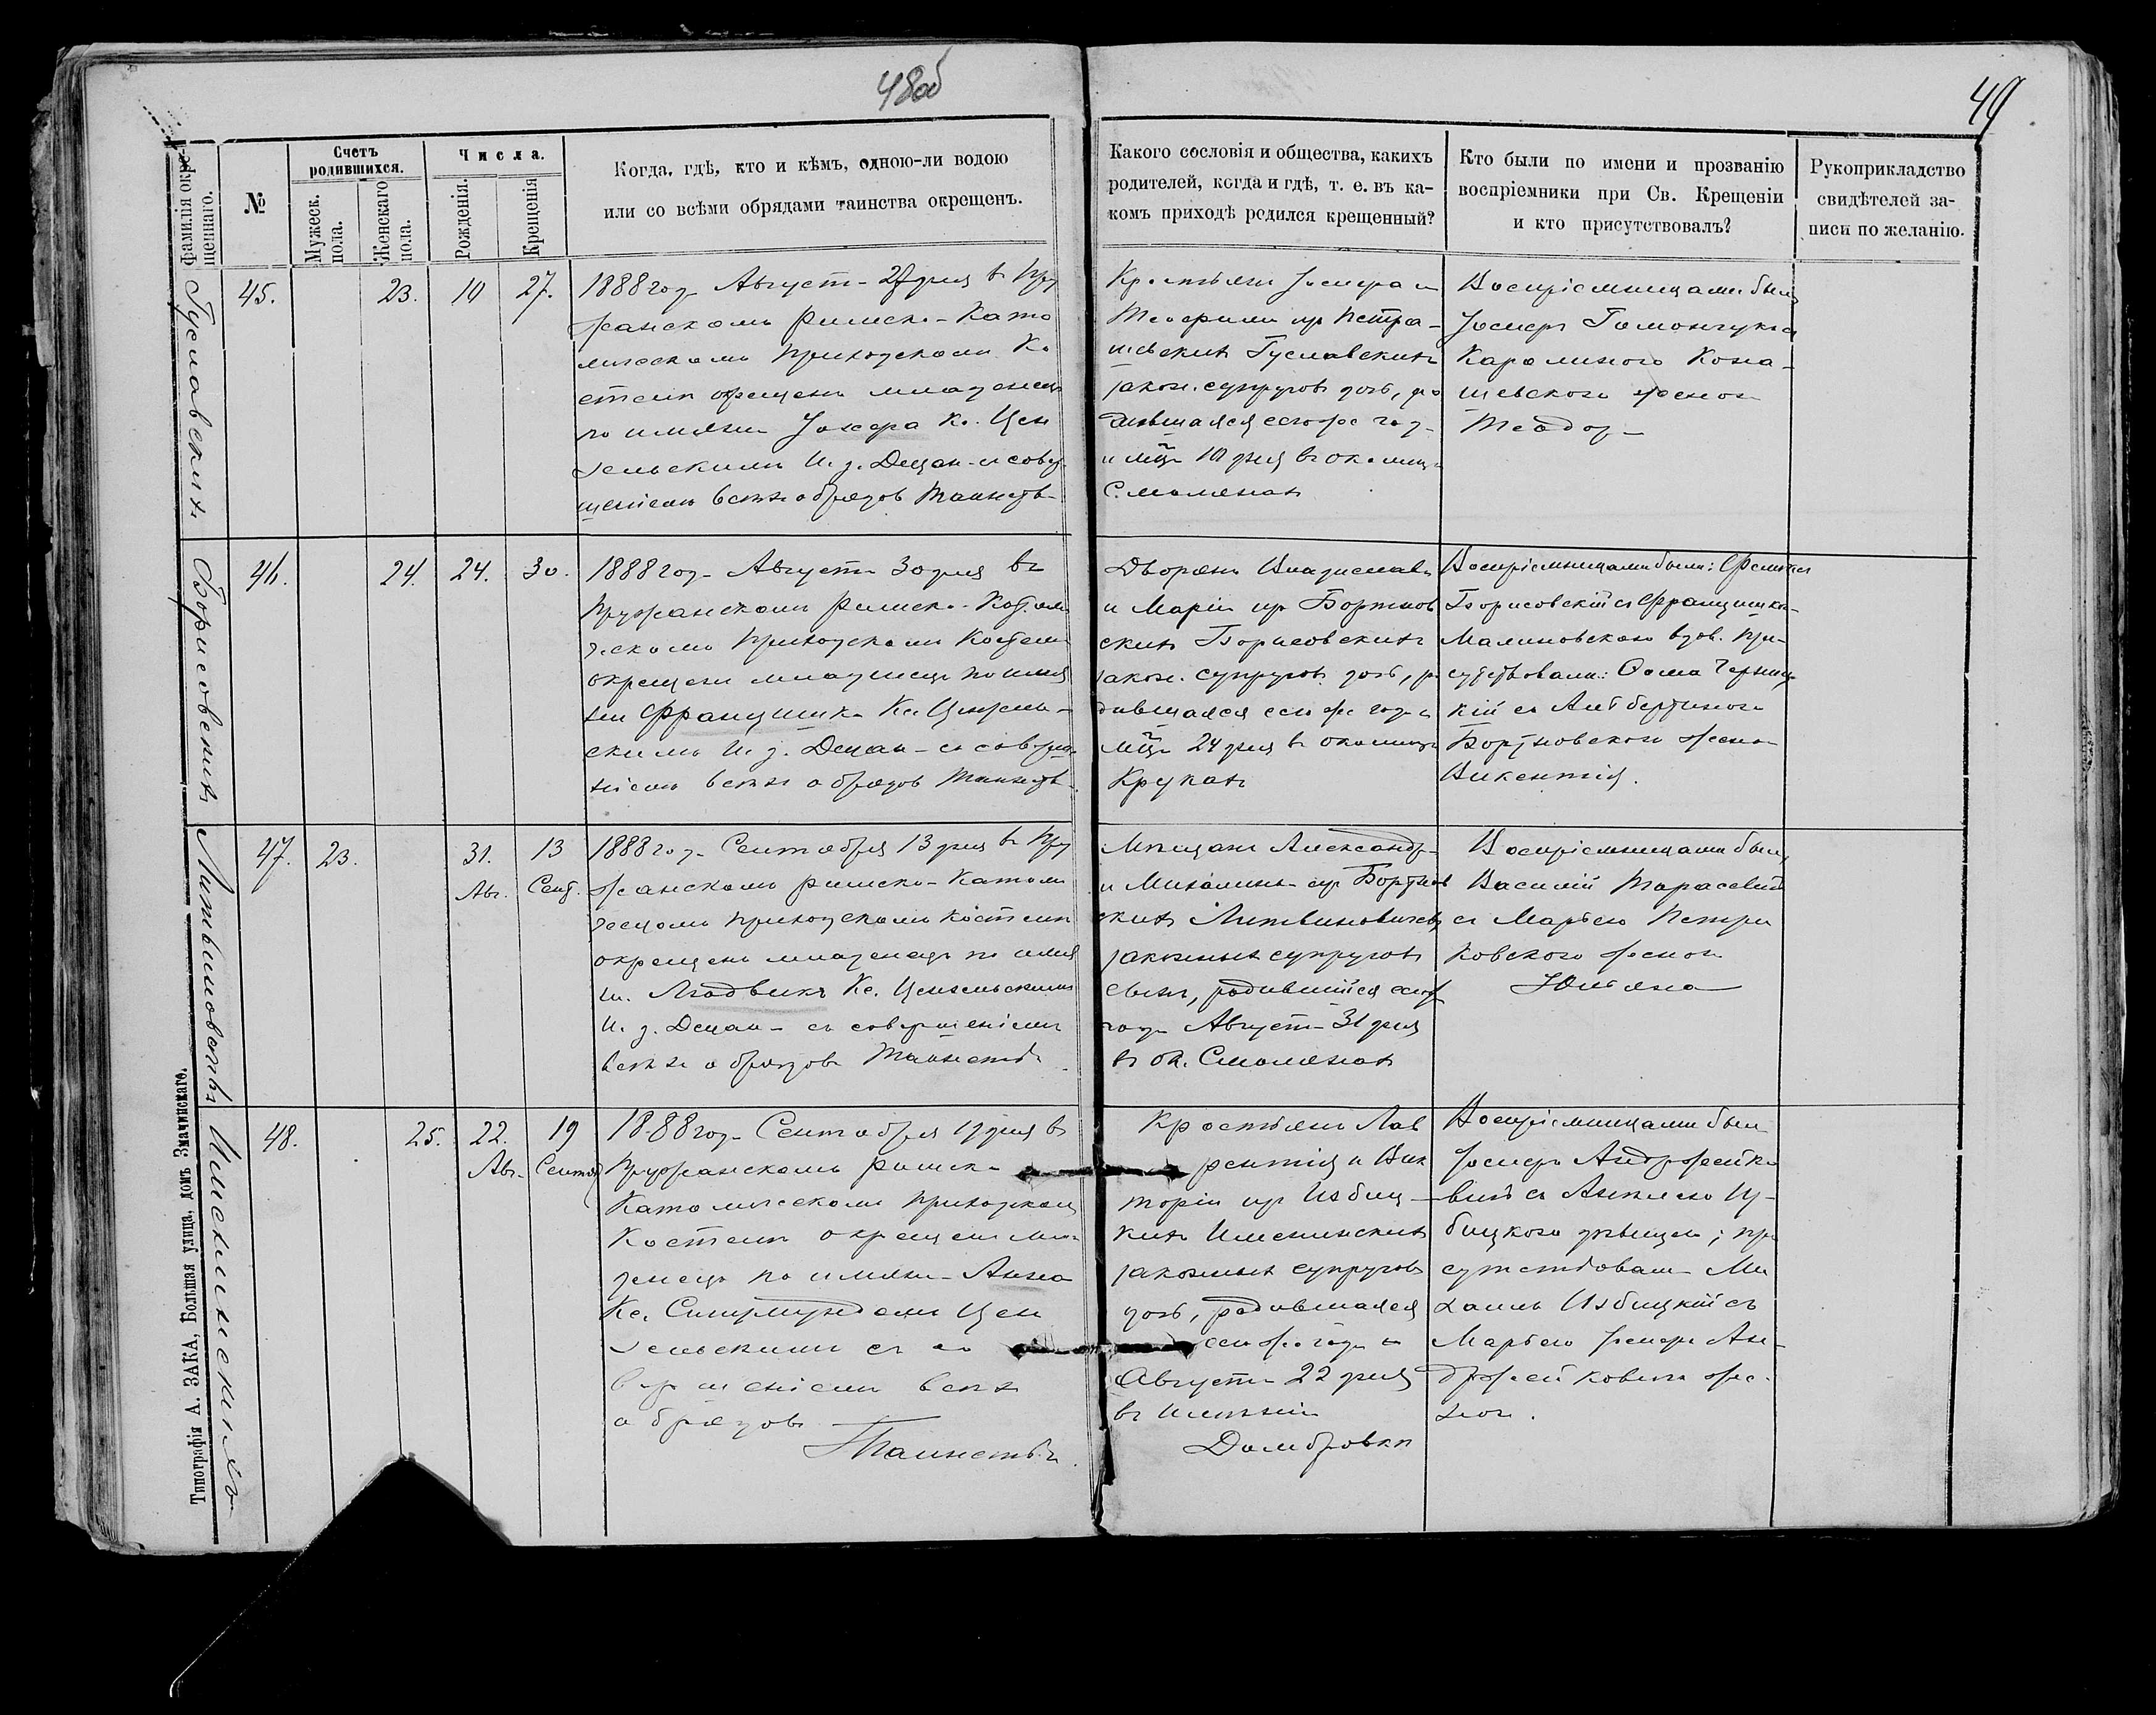 48об
49
Фамилія окре-
щеннаго.
№
Счетъ
родившихся.
Мужеск.
пола.
Женскаго
пола.
Числа.
Рожденія.
Крещенія
Когда, гдѣ, кто и кѣмъ, одною-ли водою
или со всѣми обрядами таинства окрещенъ.
Какого сословія и общества, какихъ
родителей, когда и гдѣ, т. е. въ ка-
комъ приходѣ родился крещенный?
Кто были по имени и прозванію
воспріемники при Св. Крещеніи
и кто присутствовалъ?
Рукоприкладство
свидѣтелей за-
писи по желанію.
Гуславскихъ
45.
23.
10
27.
1888 года Августа 27 дня въ Пру
жанскомъ Римско-Като
лическомъ Приходскомъ Ко
стелѣ окрещенъ младенецъ
по имени Кс. Цен
зельскимъ И. д. Декана съ совер
шеніемъ всѣхъ обрядовъ Таинства
Крестьянъ Іосифа и
Теофили ур. Петра-
шевскихъ Гуславскихъ
закон. супруговъ дочь, ро
дившаяся сего же года
и м-ца 10 дня въ околицѣ
Смолянахъ
Воспріемниками были
Іосифъ съ
Каролиною
шевскою женою
Борисовскихъ
46.
24.
24.
30.
1888 года Августа 30 дня въ
Пружанскомъ Римско-Католи
ческомъ Приходскомъ Костелѣ
окрещенъ младенецъ по име
ни Францишка Кс. Цензель-
скимъ И. д. Декана съ соверше
ніемъ всѣхъ обрядовъ Таинства.
Дворянъ Владислава
и Маріи ур. Бортнов
скихъ Борисовскихъ
закон. супруговъ дочь, ро
дившаяся сего же года и
м-ца 24 дня въ околицѣ
Крукахъ
Воспріемниками были: Феликсъ
Борисовскій съ Францишкою
Малиновскою вдов. При-
сутствовали: Ѳома
кій съ Альбертиною
Бортновскою женою
Викентія.
Литвиновичъ
47.
23.
31.
Авг.
13
Сент.
1888 года Сентября 13 дня въ Пру
жанскомъ Римско-Католи
ческомъ Приходскомъ Костелѣ
окрещенъ младенецъ по имя
ни Людвикъ Кс. Цензельскимъ
И. д. Декана съ совершеніемъ
всѣхъ обрядовъ Таинства.
Мѣщанъ Александра
и Михалины ур. Бортнов
скихъ Литвиновичевъ
законныхъ супруговъ
сынъ, родившійся сего
года Августа 31 дня
въ ок. Смолянахъ
Воспріемниками были
Василій Тарасевичъ
съ Марьею Петри
ковскою женою
Юльяна
Именинскихъ
48.
25.
22.
Авг.
19
Сентяб
1888 года Сентября 19 дня въ
Пружанскомъ Римско
Католическомъ Приходском
Костелѣ окрещенъ мла
денецъ по имени Анна
Кс. Сигизмундомъ Цен
зельскимъ съ со
вершеніемъ всѣхъ
обрядовъ
Таинства.
Крестьянъ Лав
рентія и Вик
торіи ур. Избиц-
кихъ Именинскихъ
законныхъ супруговъ
дочь, родившаяся
сего же года
Августа 22 дня
въ имѣніи
Домбровкѣ
Воспріемниками были
Іосифъ Андржейко
вичъ съ Анелею Из-
бицкою дѣвицею; при
сутствовали Ми
хаилъ Избицкій съ
Марьею Іосифа Ан-
држейковича же-
ною.
Типографія А. ЗАКА, Большая улица, домъ Змачинскаго.